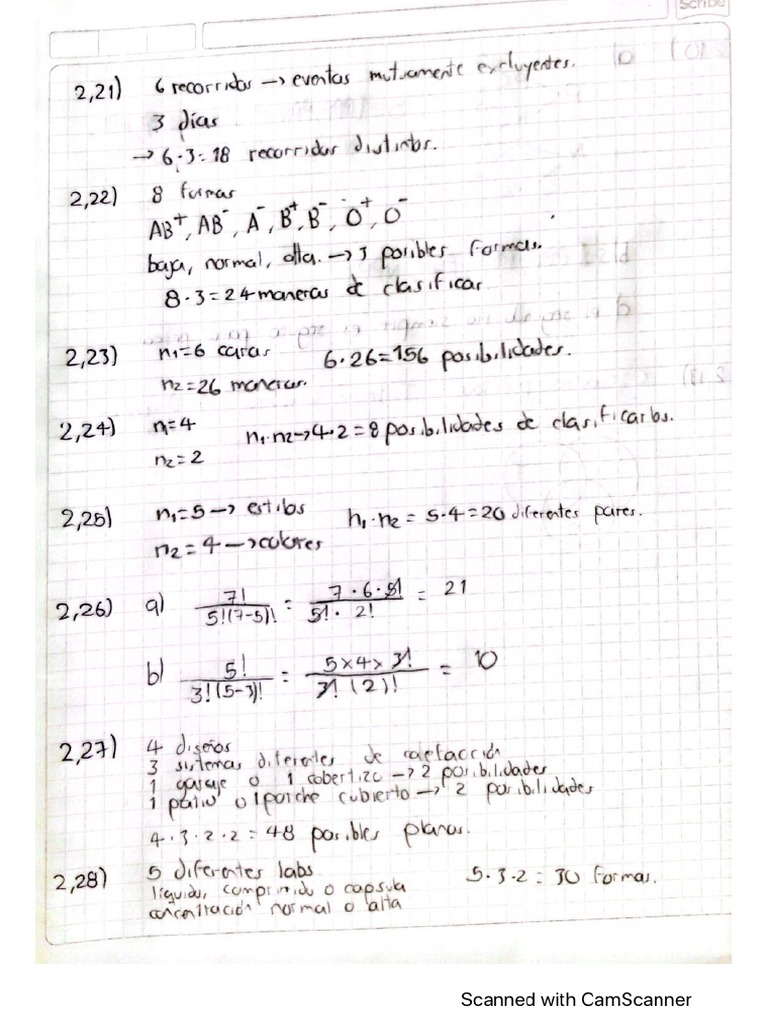 Scribe
2,21) 6 recorridos → eventos mutuamente excluyentes.
3 días
→ 6·3=18 recorridos distintos.
2,22) 8 formas
AB⁺, AB⁻, A⁻, B⁺, B⁻, O⁺, O⁻
baja, normal, alta. → 3 posibles formas.
8·3=24 maneras de clasificar
2,23) n₁=6 caras 6·26=156 posibilidades.
n₂=26 maneras.
2,24) n₁=4 n₁·n₂→4·2=8 posibilidades de clasificarlos.
n₂=2
2,25) n₁=5 → estilos n₁·n₂ = 5·4=20 diferentes pares.
n₂=4 → colores
2,26) a) 7!/5!(7-5)! = 7·6·5!/5!·2! = 21
b) 5!/3!(5-3)! = 5×4×3!/3!(2)! = 10
2,27) 4 diseños
3 sistemas diferentes de calefacción
1 garaje o 1 cobertizo → 2 posibilidades
1 patio o 1 porche cubierto → 2 posibilidades
4·3·2·2=48 posibles planos.
2,28) 5 diferentes labs 5·3·2=30 formas.
líquido, comprimido o capsula
concentración normal o alta
Scanned with CamScanner